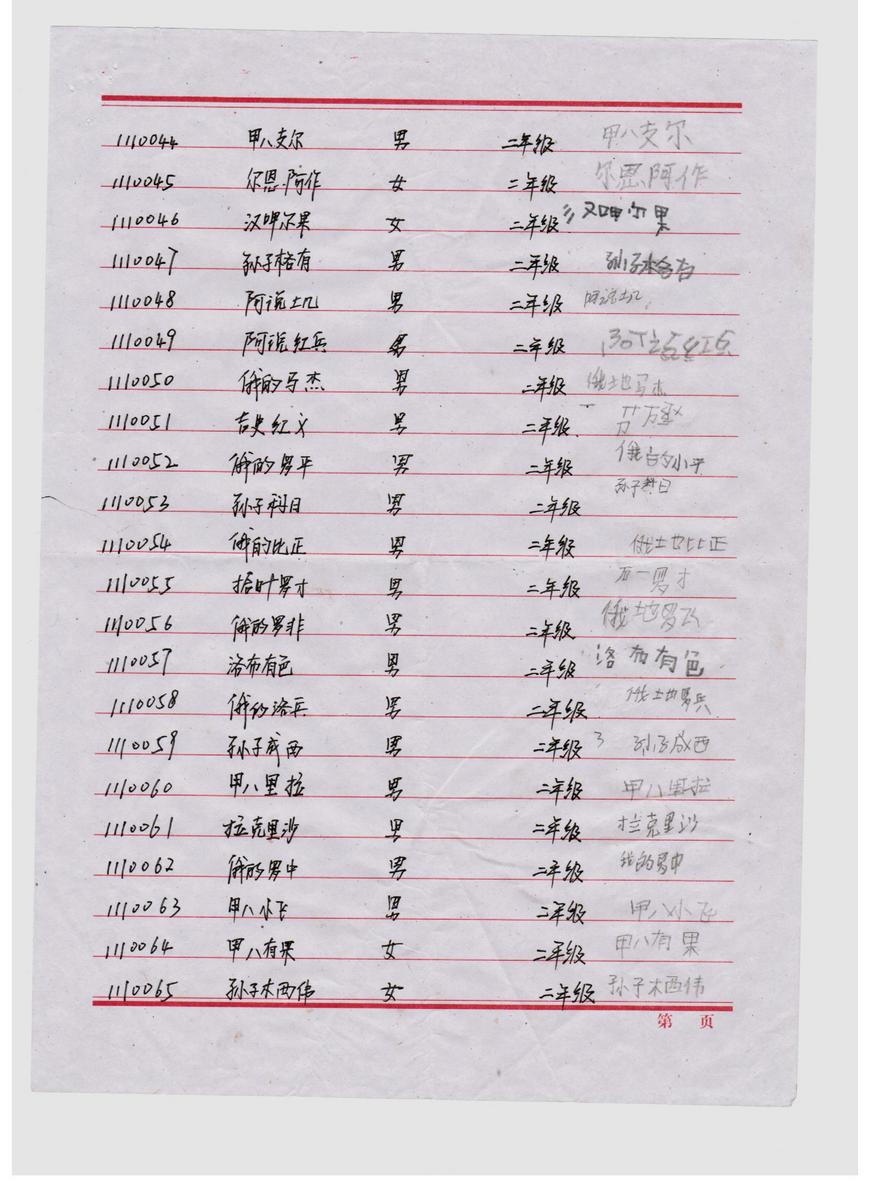 1110044 甲八支尔 男 二年级 甲八支尔
1110045 尔恩阿作 女 二年级 尔恩阿作
1110046 汉呷尔果 女 二年级 汉呷尔果
1110047 孙子格有 男 二年级 孙子格有
1110048 阿说土几 男 二年级 阿说土几
1110049 阿说红兵 男 二年级
1110050 俄的马杰 男 二年级 俄地马杰
1110051 吉史红义 男 二年级
1110052 俄的罗平 男 二年级 俄白的小平
1110053 孙子科日 男 二年级 孙子科日
1110054 俄的比正 男 二年级 俄地比正
1110055 罗才 男 二年级 一罗才
1110056 俄的罗非 男 二年级 俄地罗飞
1110057 洛布有色 男 二年级 洛布有色
1110058 俄的洛兵 男 二年级 俄地罗兵
1110059 孙子成西 男 二年级 3 孙子成西
1110060 甲八里拉 男 二年级 甲八里拉
1110061 拉克里沙 男 二年级 拉克里沙
1110062 俄的罗中 男 二年级 俄的罗中
1110063 甲八小飞 男 二年级 甲八小飞
1110064 甲八有果 女 二年级 甲八有果
1110065 孙子木西伟 女 二年级 孙子木西伟
第 页